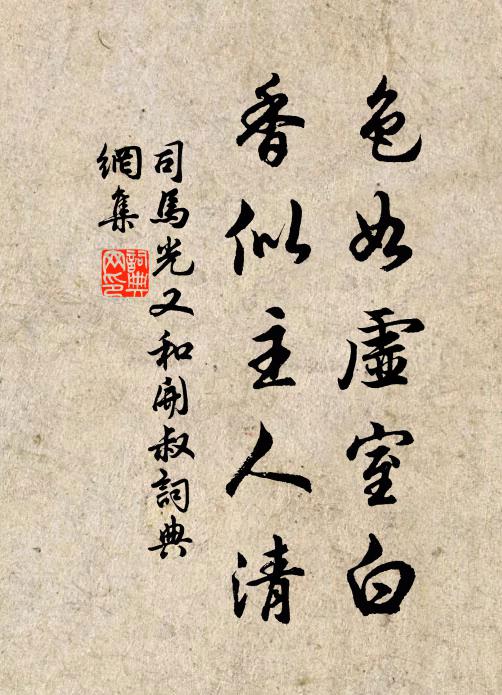 色如虛室白
香似主人清
司馬光又和開叔詞典
網集
詞典
网印